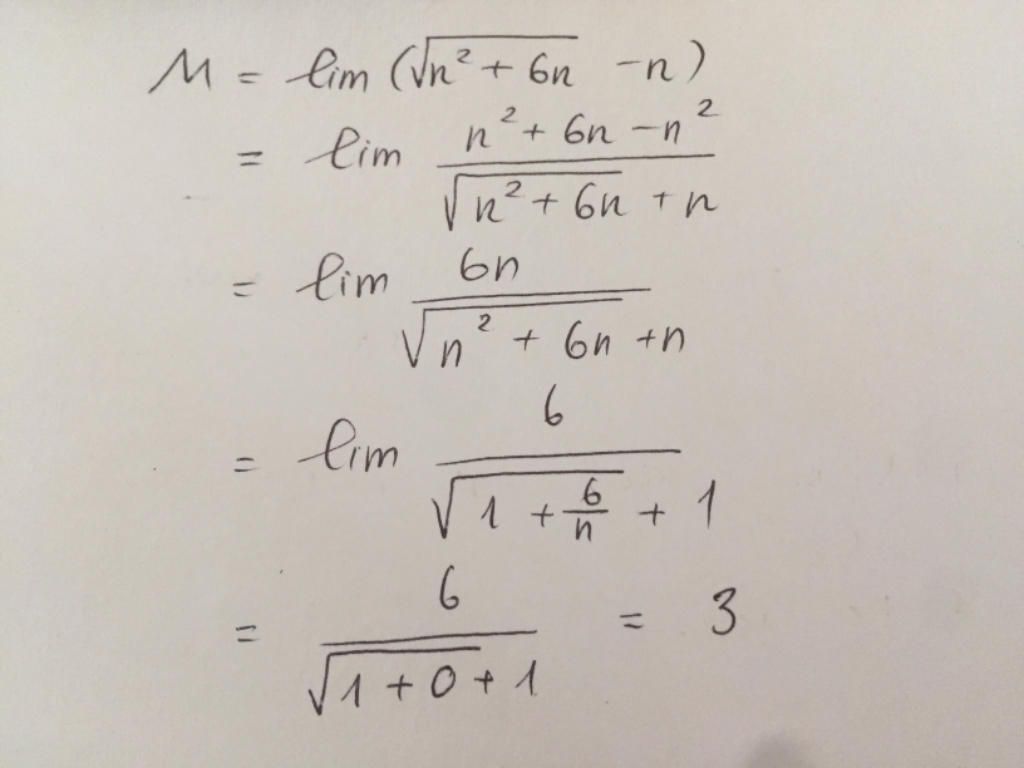 M = lim (√(n² + 6n) - n)
= lim (n² + 6n - n²) / (√(n² + 6n) + n)
= lim 6n / (√(n² + 6n) + n)
= lim 6 / (√(1 + 6/n) + 1)
= 6 / (√(1 + 0) + 1) = 3